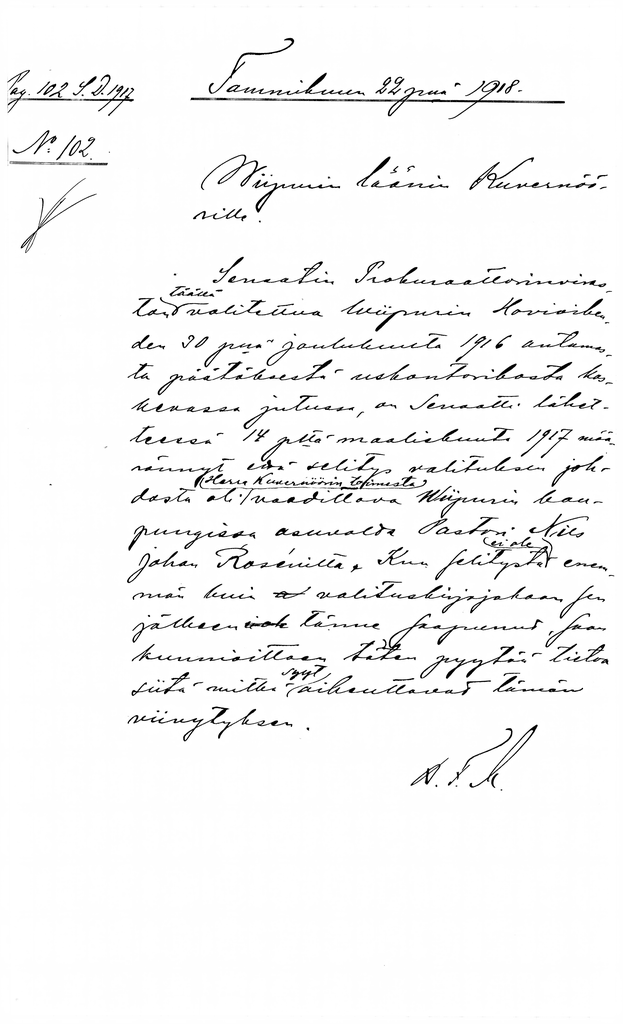 Pag. 102 S.D. 1917
Tammikuun 22 pnä 1918.
No 102.
Wiipurin läänin Kuvernöö-
rille.
Senaatin Prokuraattorinviras-
ton täällä valitettua Wiipurin Hovioikeu-
den 30 pnä joulukuuta 1916 antamas-
ta päätöksestä uskontorikosta kos-
kevassa jutussa, on Senaatti lähet-
teessä 14 pltä maaliskuuta 1917 mää-
rännyt että selitys valituksen joh-
dosta oli Herra Kuvernöörin toimesta vaadittava Wiipurin kau-
pungissa asuvalta Pastori Nils
Johan Rosénilta. Kun selitystä enem-
män kuin valituskirjajakaan sen
jälkeen ei ole tänne saapunut, saan
kunnioittaen täten pyytää tietoa
siitä mitkä syyt aiheuttavat tämän
viivytyksen.
K. F. M.